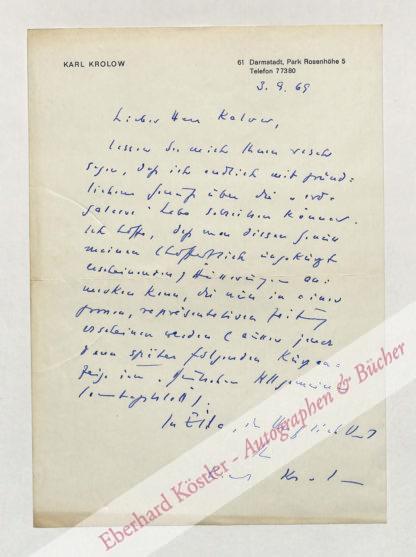 KARL KROLOW
61 Darmstadt, Park Rosenhöhe 5
Telefon 77380
3. 9. 69
Lieber Herr Kalow,
lassen Sie mich Ihnen rasch
sagen, daß ich endlich mit gründ=
lichem Genuß über die
habe schreiben können.
Ich hoffe, daß man diesen Genuß
meinen (hoffentlich ungekürzt
erscheinenden) an=
merken kann, die nun in einer
grossen, repräsentativen Zeitung
erscheinen werden (außer jener
dann später folgenden
im
In Eile, 
Ihr
Karl Krolow
Eberhard Köstler - Autographen & Bücher